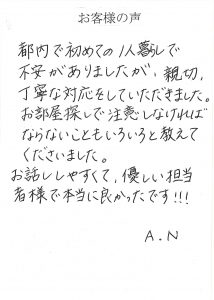 お客様の声
都内で初めての1人暮しで
不安がありましたが、親切、
丁寧な対応をしていただきました。
お部屋探しで注意しなければ
ならないこともいろいろと教えて
くださいました。
お話ししやすくて、優しい担当
者様で本当に良かったです!!!
A.N